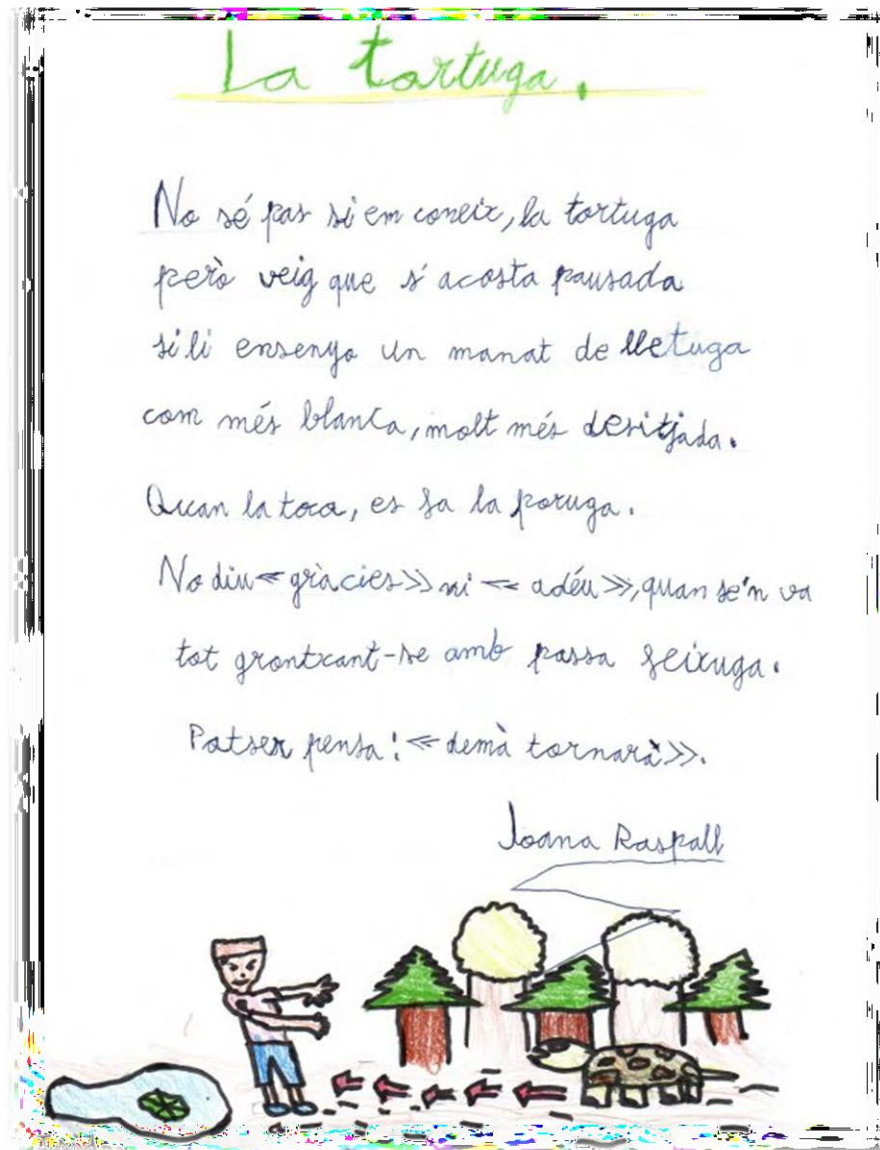 La tortuga.
No sé pas si em coneix, la tortuga
però veig que s'acosta pausada
si li ensenyo un manat de lletuga
com més blanca, molt més desitjada.
Quan la toca, es fa la poruga.
No diu «gràcies» ni «adéu», quan se'n va
tot grontxant-se amb passa feixuga.
Potser pensa: «demà tornarà».
Joana Raspall